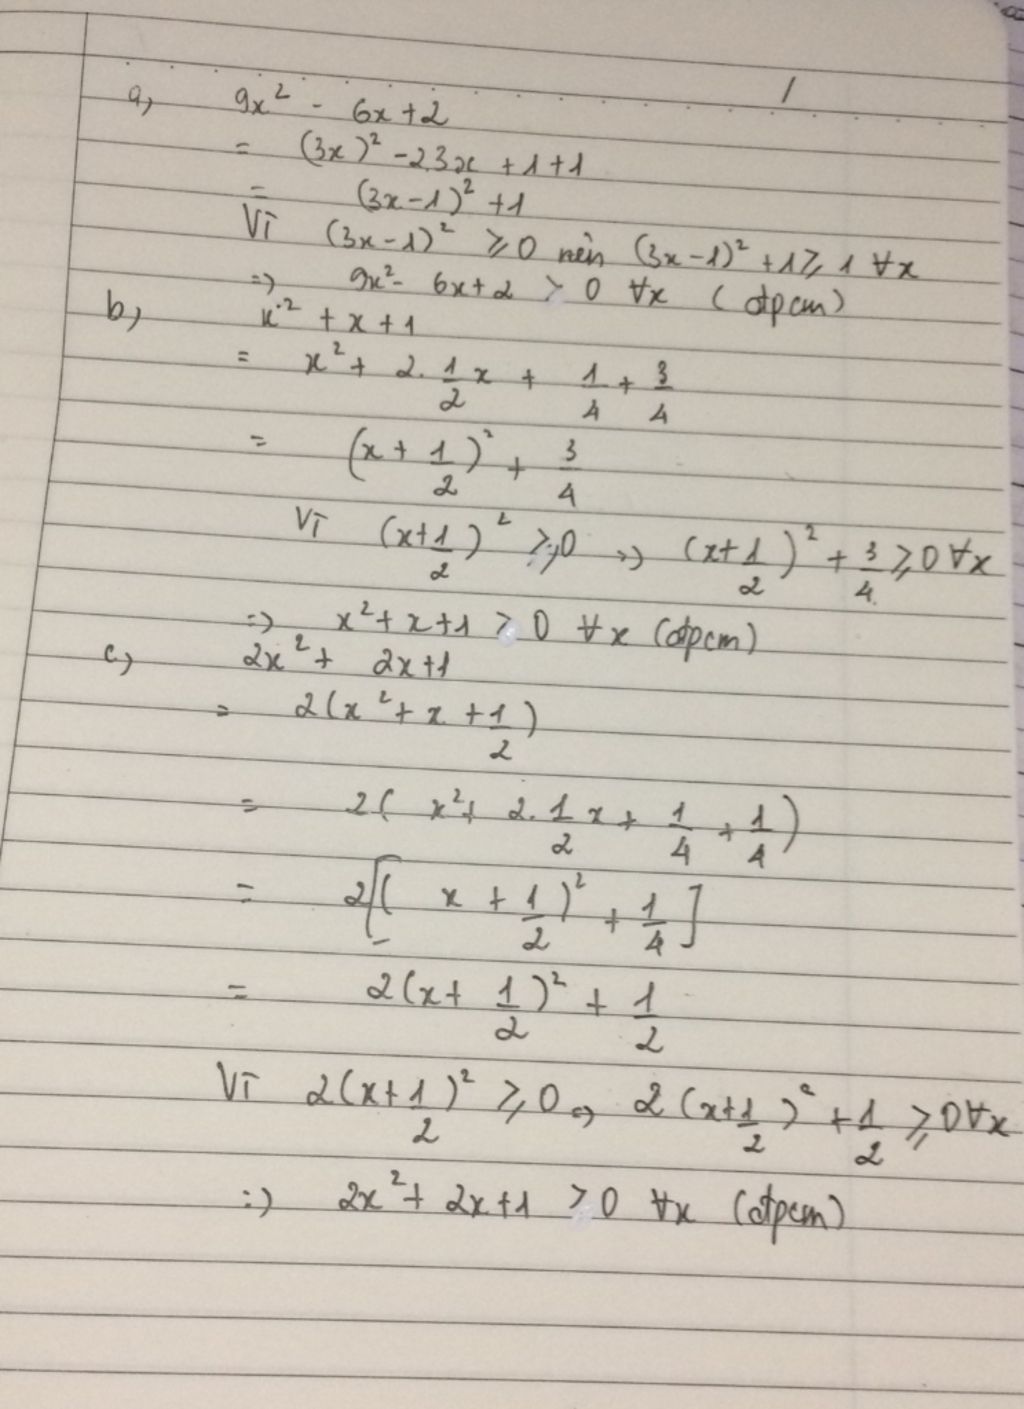 a) 9x² - 6x + 2
= (3x)² - 2.3x + 1 + 1
= (3x-1)² + 1
Vì (3x-1)² ≥ 0 nên (3x-1)² + 1 ≥ 1 ∀x
=> 9x² - 6x + 2 > 0 ∀x (đpcm)
b) x² + x + 1
= x² + 2. 1/2 x + 1/4 + 3/4
= (x + 1/2)² + 3/4
Vì (x + 1/2)² ≥ 0 => (x + 1/2)² + 3/4 ≥ 0 ∀x
=> x² + x + 1 > 0 ∀x (đpcm)
c) 2x² + 2x + 1
= 2(x² + x + 1/2)
= 2(x² + 2. 1/2 x + 1/4 + 1/4)
= 2[(x + 1/2)² + 1/4]
= 2(x + 1/2)² + 1/2
Vì 2(x + 1/2)² ≥ 0 => 2(x + 1/2)² + 1/2 ≥ 0 ∀x
=> 2x² + 2x + 1 > 0 ∀x (đpcm)